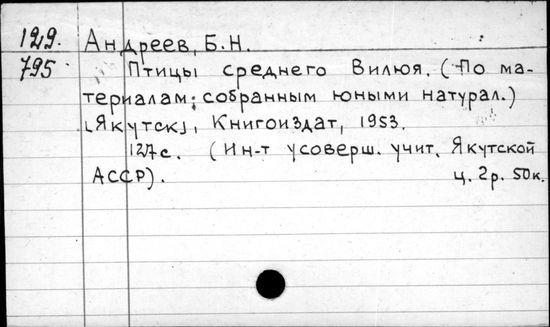 129. Андреев, Б.Н.
795 Птицы среднего Вилюя. (По ма-
териалам, собранным юными натурал.)
[Якутск], Книгоиздат, 1953.
127 с. (Ин-т усоверш. учит. Якутской
АССР). ц. 2р. 50к.